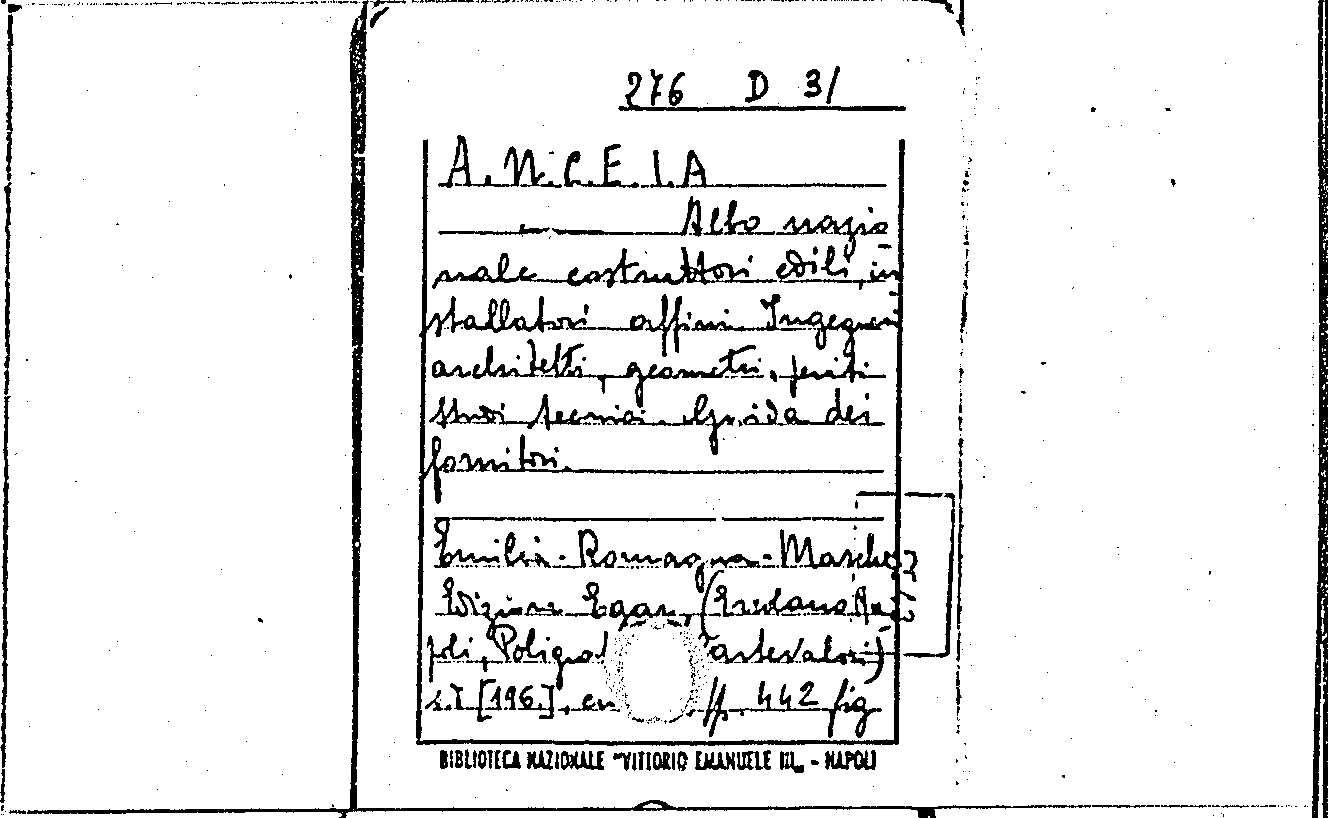 276 D 3/
A.N.C.E.I.A
Albo nazio
nale costruttori edili, in
stallatori affini Ingegneri
architetti, geometri, periti
studi tecnici. Guida dei
fornitori.
Emilia-Romagna-Marche
Edizione Egan, (Ercolano Na
poli, Poligraf artevalori)
s.d [196.], cm ff. 442 fig
BIBLIOTECA NAZIONALE "VITTORIO EMANUELE III" - NAPOLI